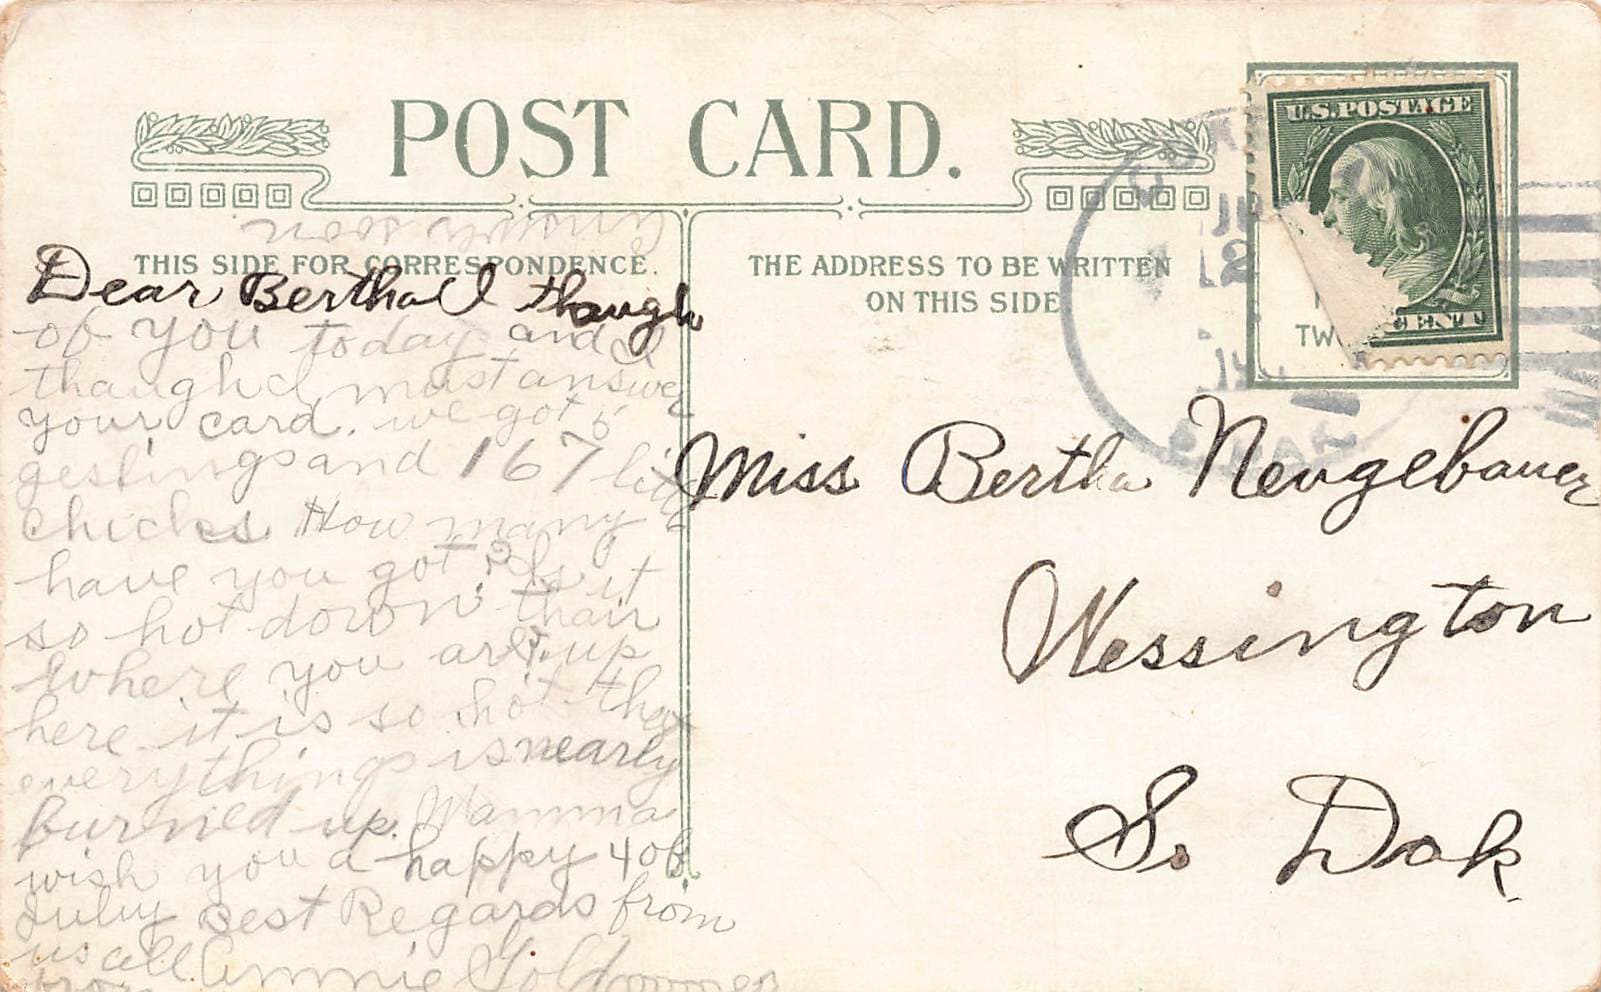 POST CARD.
THIS SIDE FOR CORRESPONDENCE.
THE ADDRESS TO BE WRITTEN
ON THIS SIDE
U.S. POSTAGE
CENT
TW
JU
2
S. DAK.
Dear Bertha I though
of you today and I
though I must answer
your card. we got 5
geslings and 167 little
chicks How many
have you got? Is it
so hot down thair
where you are? up
here it is so hot they
everything is nearly
burned up. Mamma
wish you a happy 4 of
July Best Regards from
us all Ammie Goldammer
from
soon
Miss Bertha Neugebauer
Wessington
So Dak.